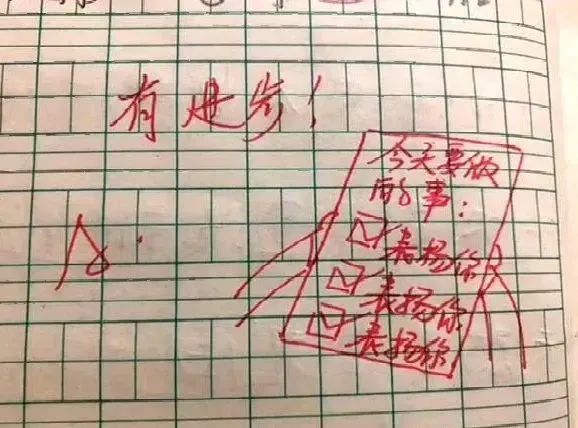 有进步!
今天要做
的事:
☑表扬你
☑表扬你
☑表扬你